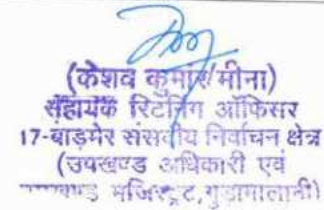 (केशव कुमार मीना)
सहायक रिटर्निंग ऑफिसर
17-बाड़मेर संसदीय निर्वाचन क्षेत्र
(उपखण्ड अधिकारी एवं
मजिस्ट्रेट, गुड़ामालानी)